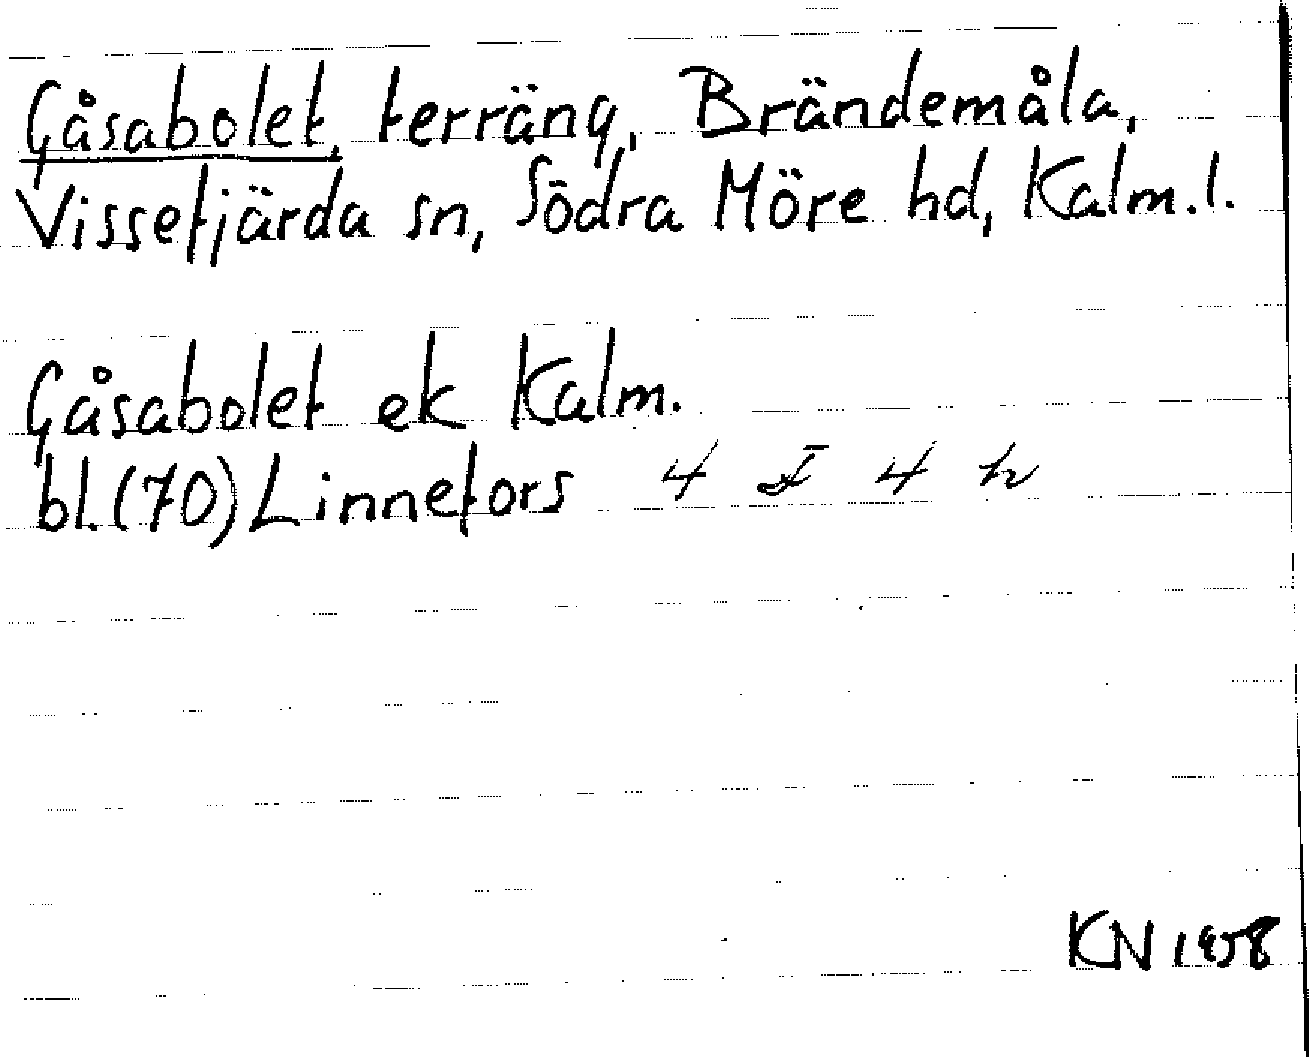 Gåsabolet, terräng, Brändemåla,
Vissefjärda sn, Södra Möre hd, Kalm.l.
Gåsabolet ek Kalm.
bl.(70) Linnefors 4 I 4 h
KN